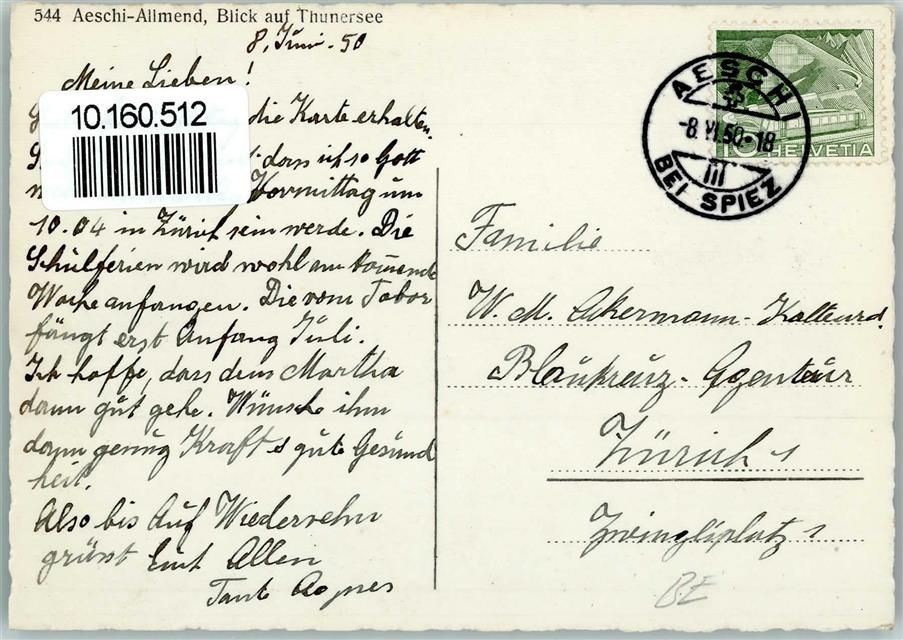 544 Aeschi-Allmend, Blick auf Thunersee
8. Juni. 50
Meine Lieben!
10.160.512
die Karte erhalten.
dass ich so Gott
Vormittag um
10.04 in Zürich sein werde. Die
Schulferien wird wohl am komende
Woche anfangen. Die vom Tabor
fängt erst Anfang Juli.
Ich hoffe, dass dem Martha
dann gut gehe. Wünsche ihm
dann genug Kraft & gute Gesund
heit.
Also bis Auf Wiedersehn
grüsst Eut Allen
Tant Agnes
AESCHI
-8.VI.50-18
III
BEI SPIEZ
10 HELVETIA
Familie
W. M. Ackermann-
Blaukreuz-Agentur
Zürich 1
Zwingliplatz 1
BE